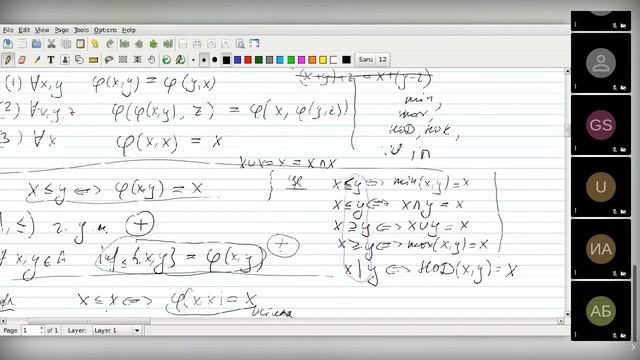 File Edit View Page Tools Options Help
Sans 12
(1) ∀x,y φ(x,y) = φ(y,x)
2) ∀x,y,z φ(φ(x,y), z) = φ(x, φ(y,z))
3) ∀x φ(x,x) = x
min,
max,
НОД, НОК,
∪, ∩
x∪x = x = x∩x
x ≤ y ⇔ φ(x,y) = x
x ≤ y ⇔ min(x,y) = x
x ≤ y ⇔ x∩y = x
x ≥ y ⇔ x∪y = x
x ≥ y ⇔ max(x,y) = x
x | y ⇔ НОД(x,y) = x
, ≤) ч.у.м. +
∀ x,y ∈ A inf≤{x,y} = φ(x,y) +
x ≤ x ⇔ φ(x,x) = x
GS
U
ИА
АБ
Page 1 of 1 Layer: Layer 1